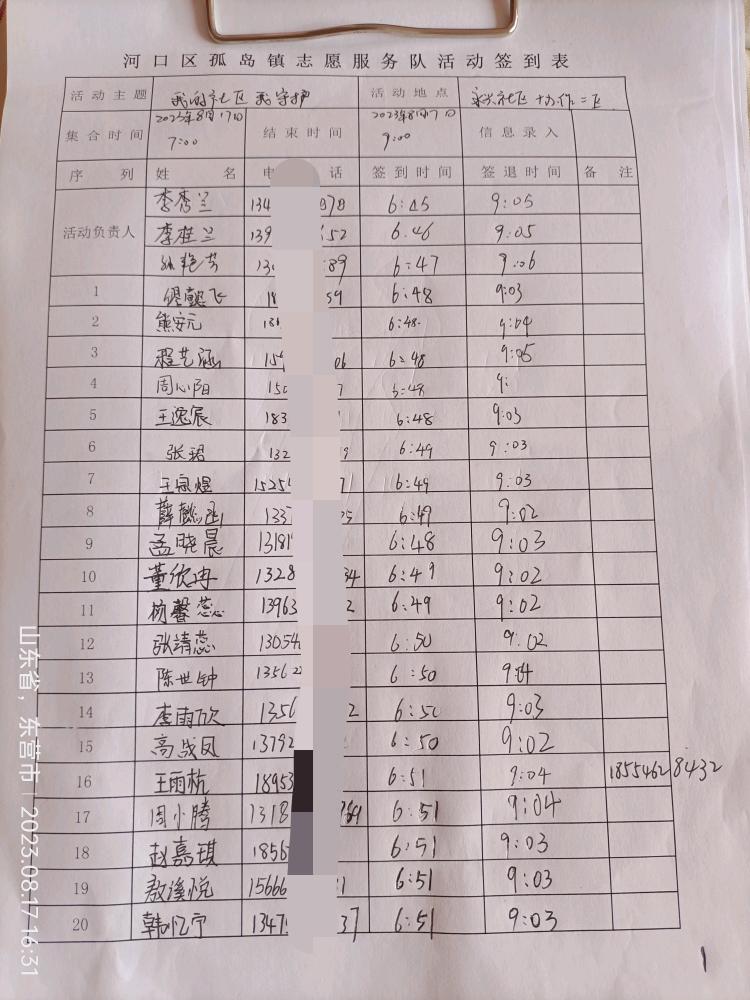 河口区孤岛镇志愿服务队活动签到表
活动主题 我的社区 我守护 活动地点
集合时间 2023年8月17日 7:00 结束时间 2023年8月17日 9:00 信息录入
序列 姓名 电话 签到时间 签退时间 备注
活动负责人 李秀兰 134 070 6:45 9:05
李桂兰 139 52 6:46 9:05
艳芳 13 89 6:47 9:06
1 懿飞 18 59 6:48 9:03
2 熊安元 6:48 9:04
3 程艺涵 15 06 6:48 9:05
4 周心阳 15 7 6:48 9:
5 王逸宸 183 6:48 9:03
6 张珺 132 9 6:49 9:03
7 王煜 1525 71 6:49 9:03
8 薛懿函 133 25 6:49 9:02
9 孟晓晨 13181 6:48 9:03
10 董欣冉 1328 34 6:49 9:02
11 杨馨蕊 13963 2 6:49 9:02
12 张靖蕊 13054 6:50 9:02
13 陈世钟 13562 6:50 9:04
14 李雨欣 1356 2 6:50 9:03
15 高战凤 13792 6:50 9:02
16 王雨杭 18953 6:51 9:04 18554628432
17 周小腾 1318 6:51 9:04
18 赵嘉琪 1856 6:51 9:03
19 敖溪悦 15666 1 6:51 9:03
20 韩忆宁 1347 37 6:51 9:03
1
山东省，东营市 | 2023.08.17 16:31